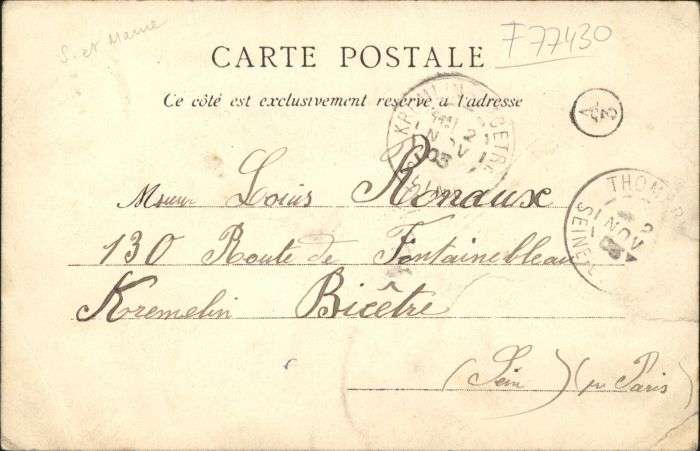 S. et Marne
F77430
CARTE POSTALE
Ce côté est exclusivement réservé à l'adresse
KREMLIN BICETRE
2
NOV
03
THOMERY
SEINE
2
NOV
03
Louis Ronaux
130 Route de Fontainebleau
Kremelin Bicêtre
(Sein) (pr Paris)